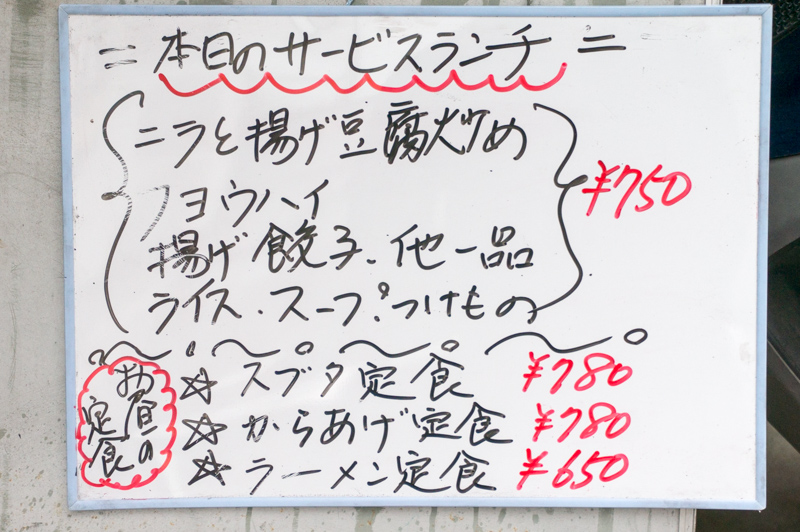 ＝本日のサービスランチ＝
ニラと揚げ豆腐炒め
ノヨウハイ
揚げ餃子、他一品
ライス・スープ・つけもの
¥750
お昼の定食
☆スブタ定食 ¥780
☆からあげ定食 ¥780
☆ラーメン定食 ¥650